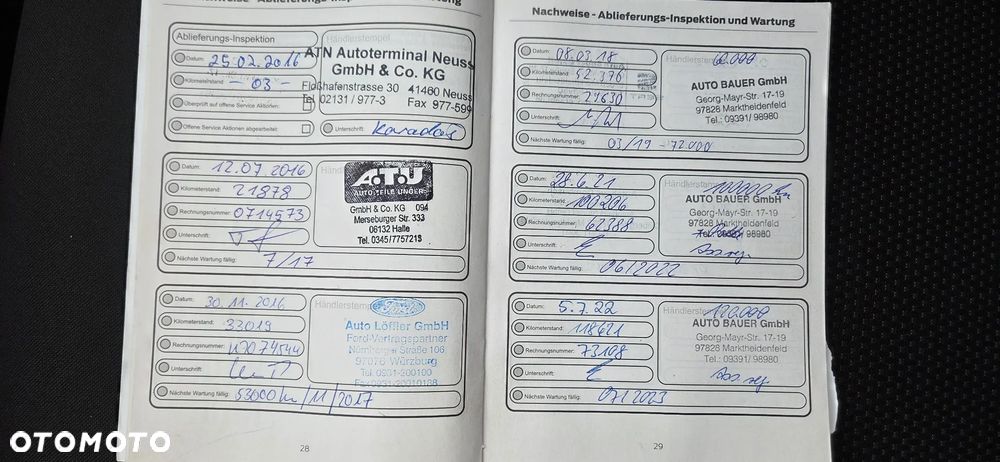 Nachweise - Ablieferungs-Inspektion und Wartung
Ablieferungs-Inspektion
Händlerstempel
Datum: 25.02.2016
Kilometerstand: - 03 -
Überprüft auf offene Service Aktionen:
Offene Service Aktionen abgearbeitet:
ATN Autoterminal Neuss
GmbH & Co. KG
Floßhafenstrasse 30 41460 Neuss
Tel 02131 / 977-3 Fax 977-599
Unterschrift:
Datum: 12.07.2016
Kilometerstand: 21878
Rechnungsnummer: 0714573
Unterschrift:
Nächste Wartung fällig: 7/17
ATU
AUTO TEILE UNGER
GmbH & Co. KG 094
Merseburger Str. 333
06132 Halle
Tel. 0345/7757218
Datum: 30.11.2016
Kilometerstand: 33019
Rechnungsnummer:
Unterschrift:
Nächste Wartung fällig: 53000km/11/2017
Händlerstempel
Ford
Auto Löffler GmbH
Ford-Vertragspartner
Nürnberger Straße 106
97076 Würzburg
Tel. 0931-200190
Fax 0931-20019188
28
Nachweise - Ablieferungs-Inspektion und Wartung
Datum: 08.03.18
Kilometerstand: 52.376
Rechnungsnummer: 24630
Unterschrift:
Nächste Wartung fällig: 03/19 - 72.000
Händlerstempel
60.000
AUTO BAUER GmbH
Georg-Mayr-Str. 17-19
97828 Marktheidenfeld
Tel.: 09391/ 98980
Datum: 28.6.21
Kilometerstand: 100206
Rechnungsnummer: 62388
Unterschrift:
Nächste Wartung fällig: 06/2022
Händlerstempel
100000 km
AUTO BAUER GmbH
Georg-Mayr-Str. 17-19
97828 Marktheidenfeld
Tel.: 09391/ 98980
Datum: 5.7.22
Kilometerstand: 118621
Rechnungsnummer: 73108
Unterschrift:
Nächste Wartung fällig: 07/2023
Händlerstempel
120.000
AUTO BAUER GmbH
Georg-Mayr-Str. 17-19
97828 Marktheidenfeld
Tel.: 09391/ 98980
29
OTOMOTO